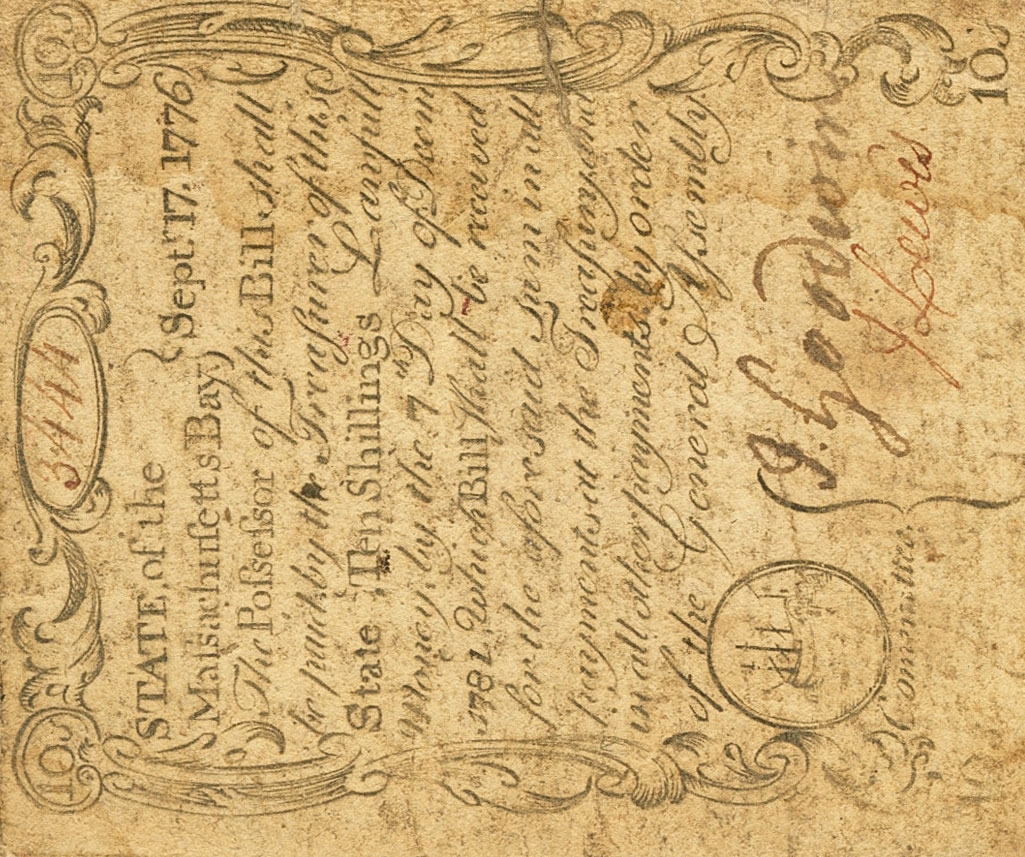 10 3444 10
STATE, of the
Maſsachuſetts Bay } Sept. 17. 1776
The Poſseſsor of this Bill shall
be paid by the Treaſurer of this
State Ten Shillings Lawfull
Money, by the 7th Day of Decm
1781. Which Bill ſhall be received
for the aforesaid Sum in all
payments at the Treaſury and
in all other payments by order
of the General Aſsembly
J. Goodwin
J Lewis
Committee
10 10s